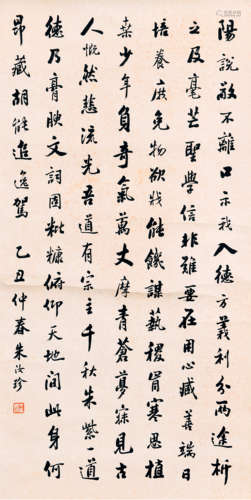 陽說敬不離口示我入德方義利分兩途析
之及毫芒聖學信非難要在用心臧善端日
培養庶免物欲戕能餓謀藝稷冒寒思植
桑少年負奇氣萬丈摩青蒼夢寐見古
人慨然慈流光吾道有宗主千秋朱紫一道
德乃膏腴文詞固粃糠俯仰天地間此身何
昂藏胡能追逸駕 乙丑仲春 朱汝珍